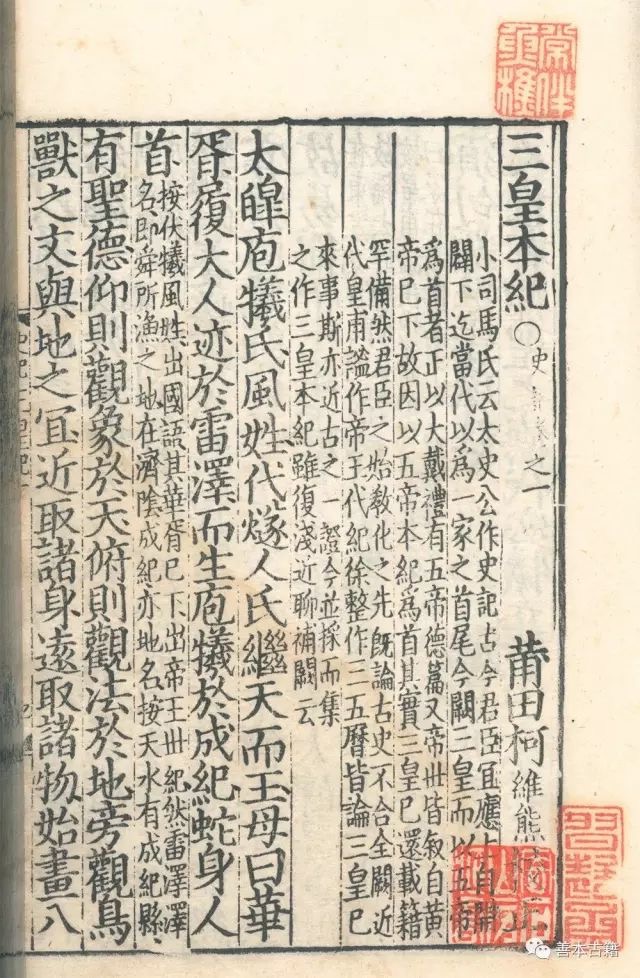 三皇本紀〇史之一 莆田柯維熊
小司馬氏云太史公作史記古今君臣宜應上自開
闢下迄當代以爲一家之首尾今闕三皇而以五帝
爲首者正以大戴禮有五帝德篇又帝丗皆叙自黄
帝已下故因以五帝本紀爲首其實三皇已還載籍
罕備然君臣之始教化之先既論古史不合全闕近
代皇甫謐作帝王代紀徐整作三五曆皆論三皇已
來事斯亦近古之一證今並採而集
之作三皇本紀雖復淺近聊補闕云
太皥庖犧氏風姓代燧人氏繼天而王母曰華
胥履大人迹於雷澤而生庖犧於成紀蛇身人
首
按伏犧風姓出國語其華胥已下出帝王丗紀然雷澤澤
名即舜所漁之地在濟陰成紀亦地名按天水有成紀縣
有聖德仰則觀象於天俯則觀法於地旁觀鳥
獸之文與地之宜近取諸身遠取諸物始畫八
善本古籍